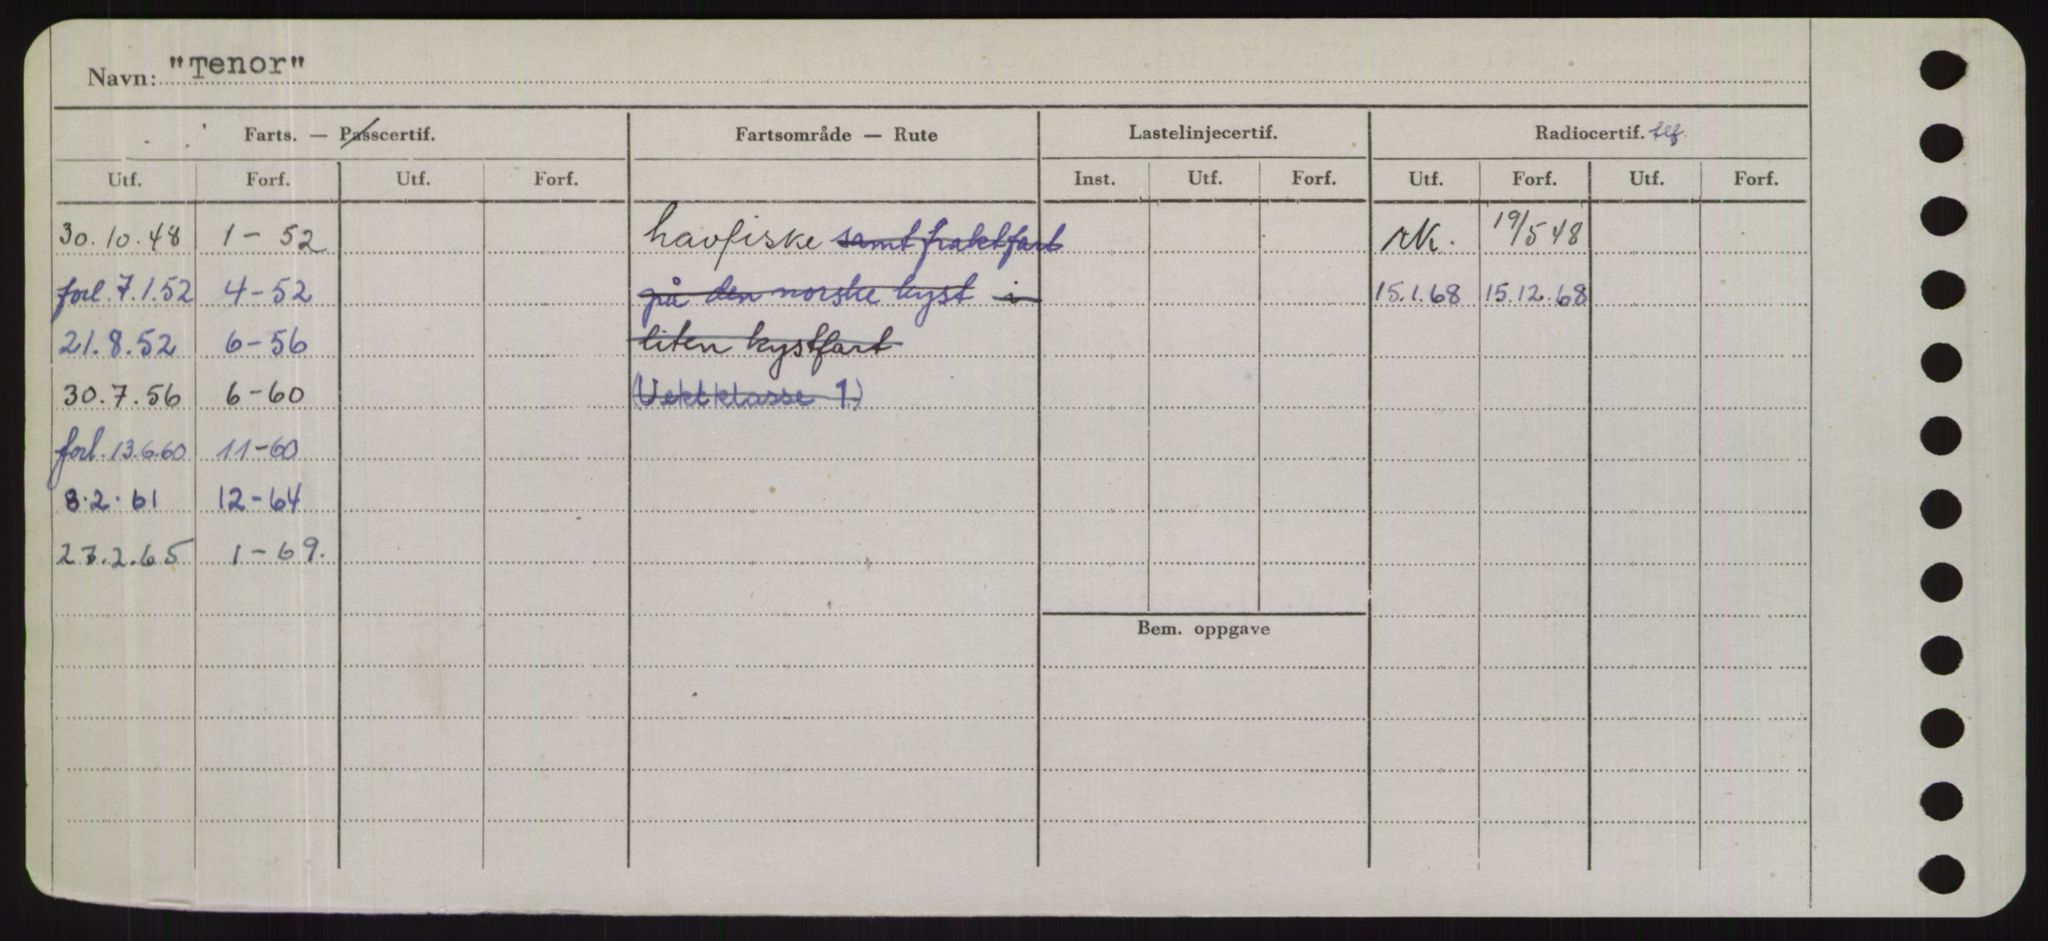 Navn: "Tenor"
Farts. — Passcertif. Fartsområde — Rute Lastelinjecertif. Radiocertif. tlf.
Utf. Forf. Utf. Forf. Inst. Utf. Forf. Utf. Forf. Utf. Forf.
30.10.48 1 - 52 havfiske samt fraktfart 19/5 48
forl. 7.1.52 4-52 på den norske kyst i 15.1.68 15.12.68
21.8.52 6-56 liten kystfart
30.7.56 6-60 (Vektklasse 1)
forl. 13.6.60 11-60
8.2.61 12-64
27.2.65 1-69.
Bem. oppgave